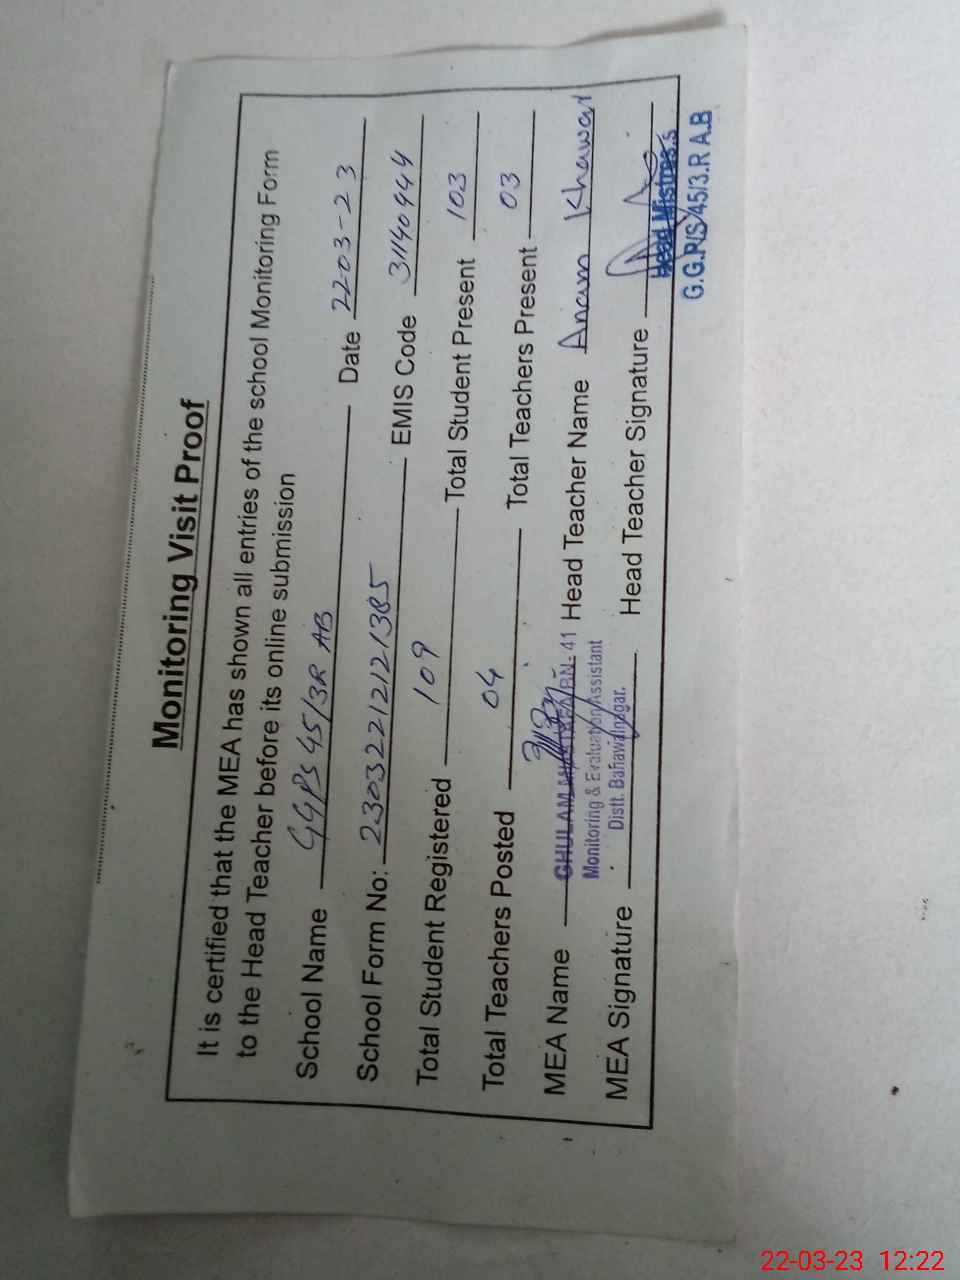 Monitoring Visit Proof
It is certified that the MEA has shown all entries of the school Monitoring Form
to the Head Teacher before its online submission
School Name GGPS 45/3R AB Date 22-03-23
School Form No: 230322121211385 EMIS Code 31140944
Total Student Registered 109 Total Student Present 103
Total Teachers Posted 04 Total Teachers Present 03
MEA Name GHULAM BN-41 Head Teacher Name Anam Khawar
Monitoring & Evaluation Assistant
Distt. Bahawalnagar.
MEA Signature Head Teacher Signature
Head Mistress
G.G.P/S 45/3.R A.B
22-03-23 12:22